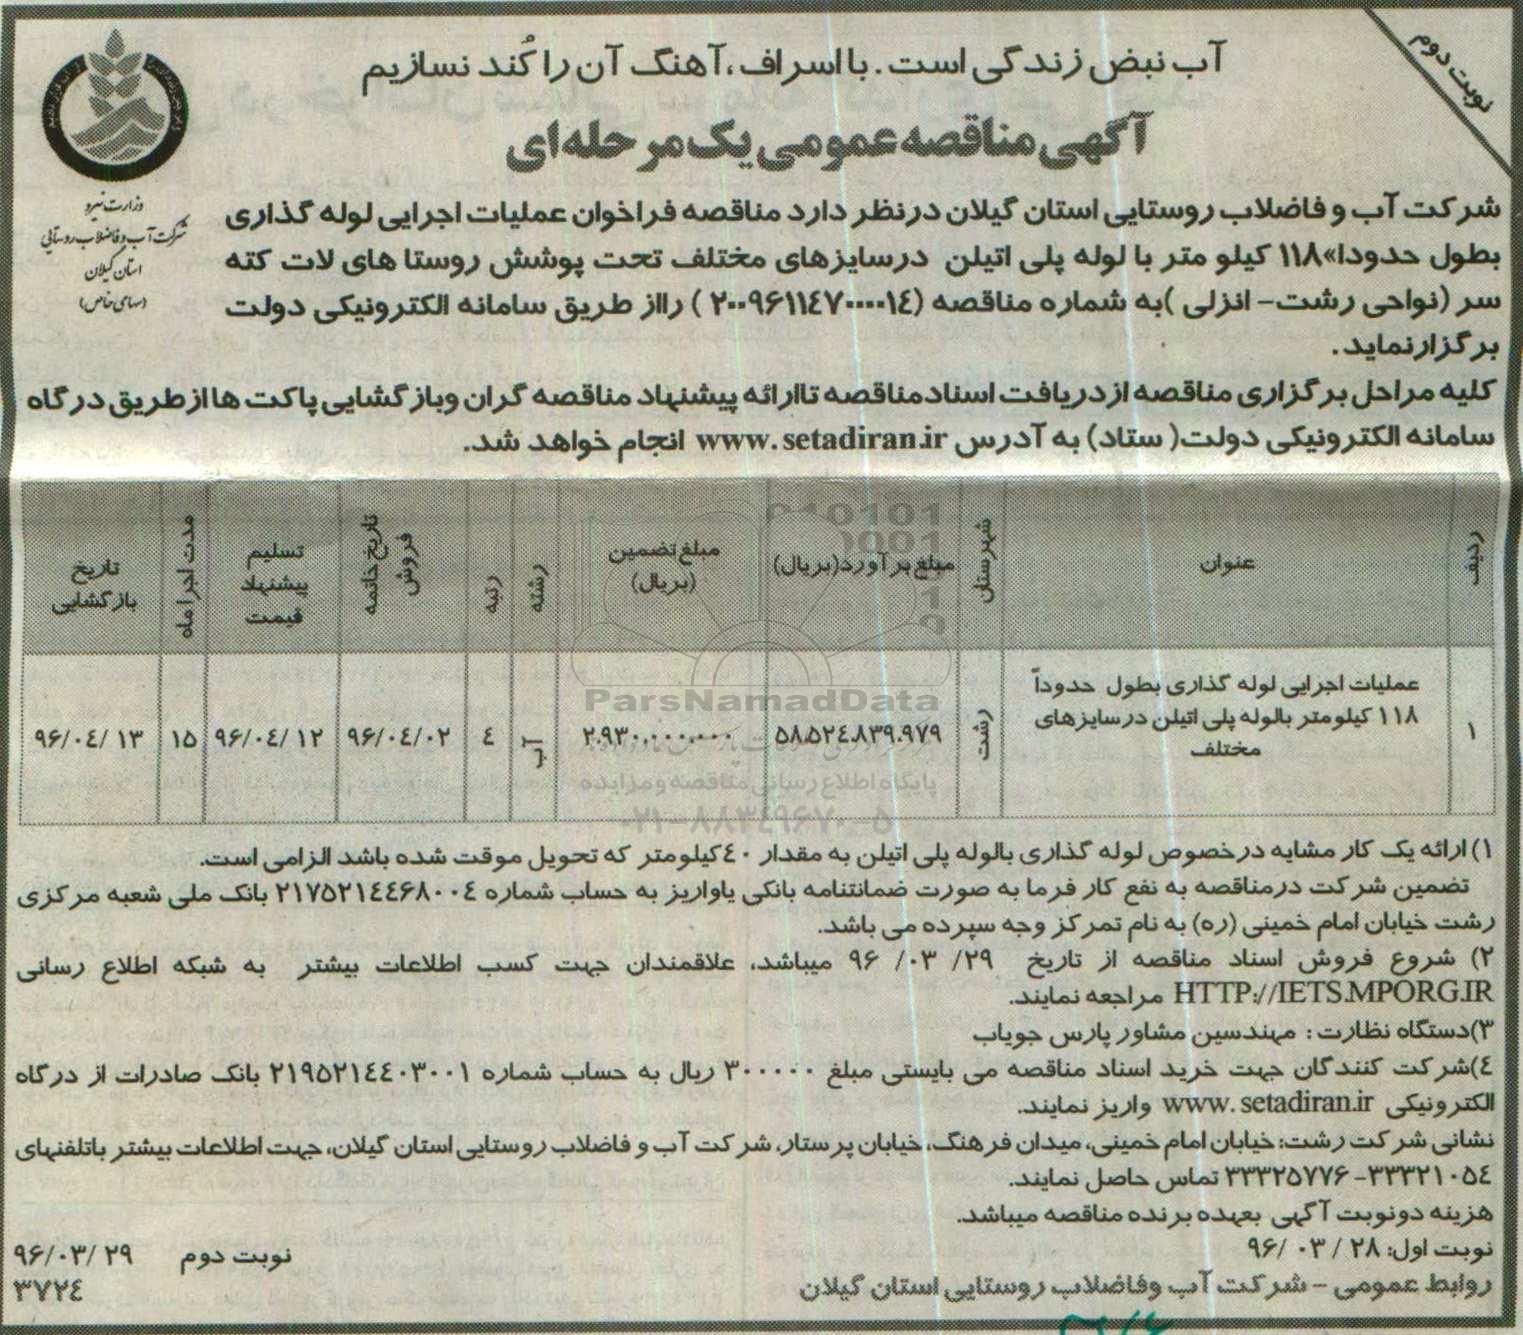 نوبت دوم
آب نبض زندگی است. با اسراف، آهنگ آن را کُند نسازیم
آگهی مناقصه عمومی یک مرحله ای
وزارت نیرو
شرکت آب و فاضلاب روستایی
استان گیلان
(سهامی خاص)
شرکت آب و فاضلاب روستایی استان گیلان درنظر دارد مناقصه فراخوان عملیات اجرایی لوله گذاری
بطول حدودا»۱۱۸ کیلو متر با لوله پلی اتیلن درسایزهای مختلف تحت پوشش روستا های لات کته
سر (نواحی رشت- انزلی )به شماره مناقصه (۲۰۰۹۶۱۱۴۷۰۰۰۰۱۴ ) رااز طریق سامانه الکترونیکی دولت
برگزارنماید.
کلیه مراحل برگزاری مناقصه ازدریافت اسنادمناقصه تاارائه پیشنهاد مناقصه گران وبازگشایی پاکت ها ازطریق درگاه
سامانه الکترونیکی دولت( ستاد) به آدرس www.setadiran.ir انجام خواهد شد.
ردیف
عنوان
شهرستان
مبلغ برآورد(بریال)
مبلغ تضمین (بریال)
رشته
رتبه
تاریخ خاتمه فروش
تسلیم پیشنهاد قیمت
مدت اجرا ماه
تاریخ بازگشایی
۱
عملیات اجرایی لوله گذاری بطول حدوداً
۱۱۸ کیلومتر بالوله پلی اتیلن درسایزهای
مختلف
رشت
۵۸.۵۲۴.۸۳۹.۹۷۹
۲.۹۳۰.۰۰۰.۰۰۰
آب
۴
۹۶/۰۴/۰۲
۹۶/۰۴/ ۱۲
۱۵
۹۶/۰۴/ ۱۳
ParsNamadData
پایگاه اطلاع رسانی مناقصه و مزایده
۰۲۱-۸۸۳۴۹۶۷۰-۵
۱) ارائه یک کار مشابه درخصوص لوله گذاری بالوله پلی اتیلن به مقدار ۴۰کیلومتر که تحویل موقت شده باشد الزامی است.
تضمین شرکت درمناقصه به نفع کار فرما به صورت ضمانتنامه بانکی یاواریز به حساب شماره ۲۱۷۵۲۱۴۴۶۸۰۰۴ بانک ملی شعبه مرکزی
رشت خیابان امام خمینی (ره) به نام تمرکز وجه سپرده می باشد.
۲) شروع فروش اسناد مناقصه از تاریخ ۲۹/ ۰۳/ ۹۶ میباشد، علاقمندان جهت کسب اطلاعات بیشتر به شبکه اطلاع رسانی
HTTP://IETS.MPORG.IR مراجعه نمایند.
۳)دستگاه نظارت : مهندسین مشاور پارس جویاب
۴)شرکت کنندگان جهت خرید اسناد مناقصه می بایستی مبلغ ۳۰۰۰۰۰ ریال به حساب شماره ۲۱۹۵۲۱۴۴۰۳۰۰۱ بانک صادرات از درگاه
الکترونیکی www.setadiran.ir واریز نمایند.
نشانی شرکت رشت: خیابان امام خمینی، میدان فرهنگ، خیابان پرستار، شرکت آب و فاضلاب روستایی استان گیلان، جهت اطلاعات بیشتر باتلفنهای
۳۳۳۲۱۰۵۴- ۳۳۳۲۵۷۷۶ تماس حاصل نمایند.
هزینه دونوبت آگهی بعهده برنده مناقصه میباشد.
نوبت اول: ۲۸ / ۰۳ /۹۶
نوبت دوم ۹۶/۰۳/ ۲۹
روابط عمومی - شرکت آب وفاضلاب روستایی استان گیلان
۳۷۲۴